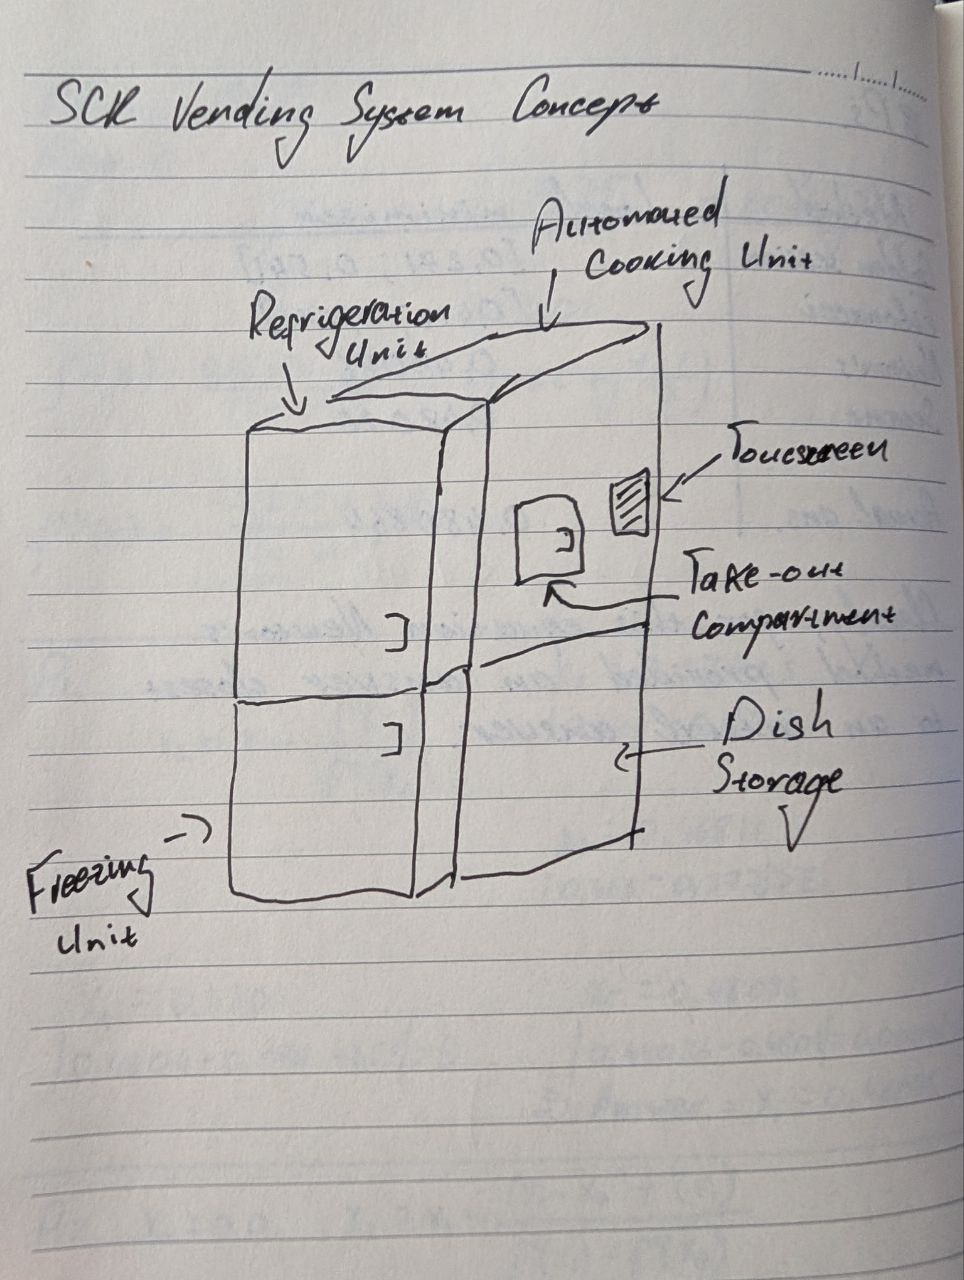 SCR Vending System Concept
Automated
Cooking Unit
Refrigeration
Unit
Toucscreen
Take-out
Compartment
Dish
Storage
Freezing
Unit